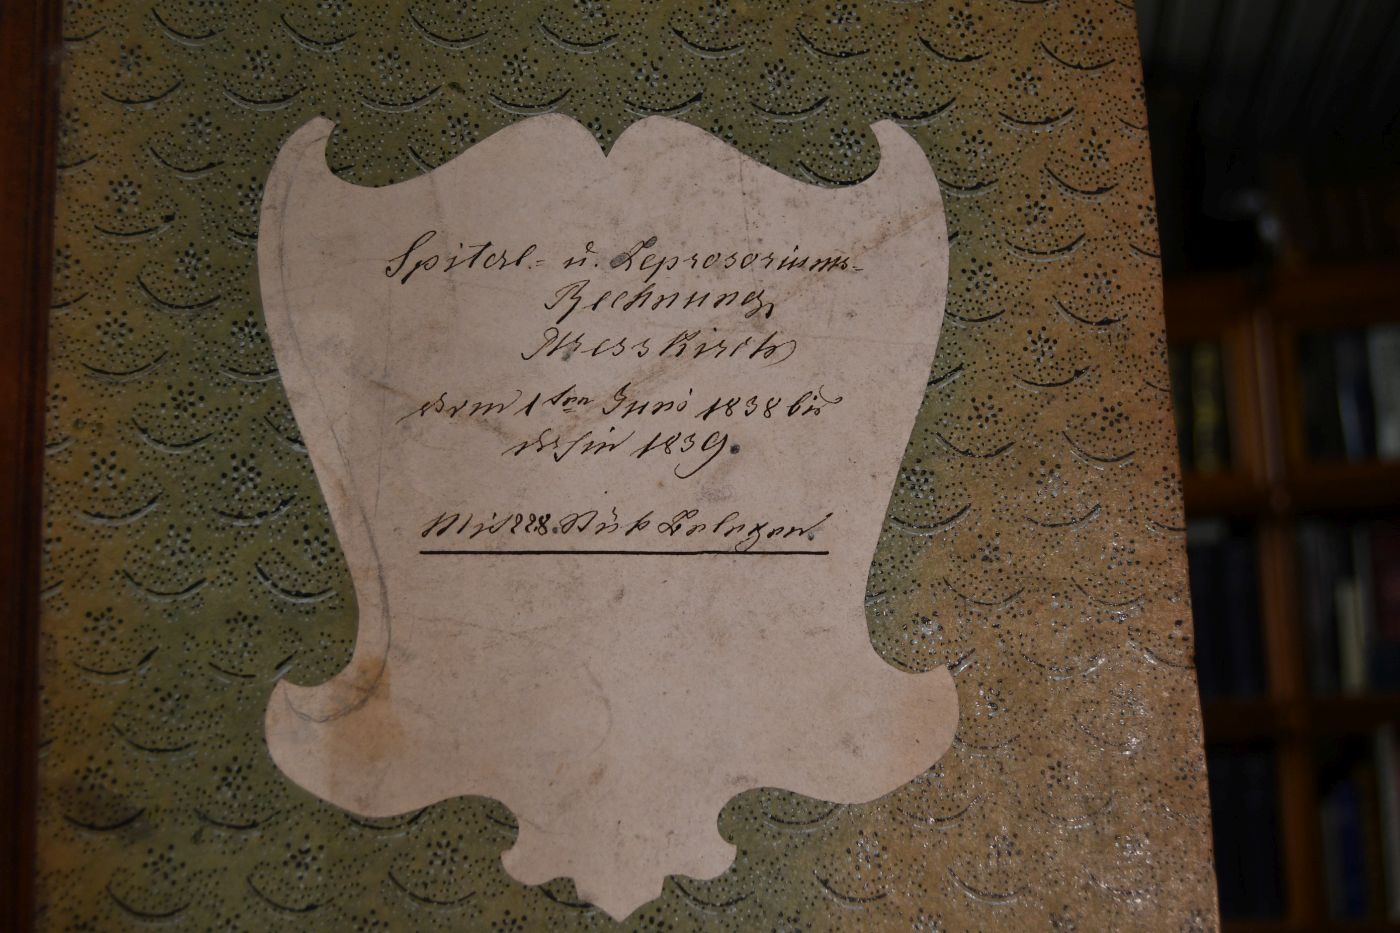 Spital- u. Leprosoriums-
Rechnung
Messkirch
vom 1ten Juni 1838 bis
dahin 1839.
Mit 228. Stük Belegen.